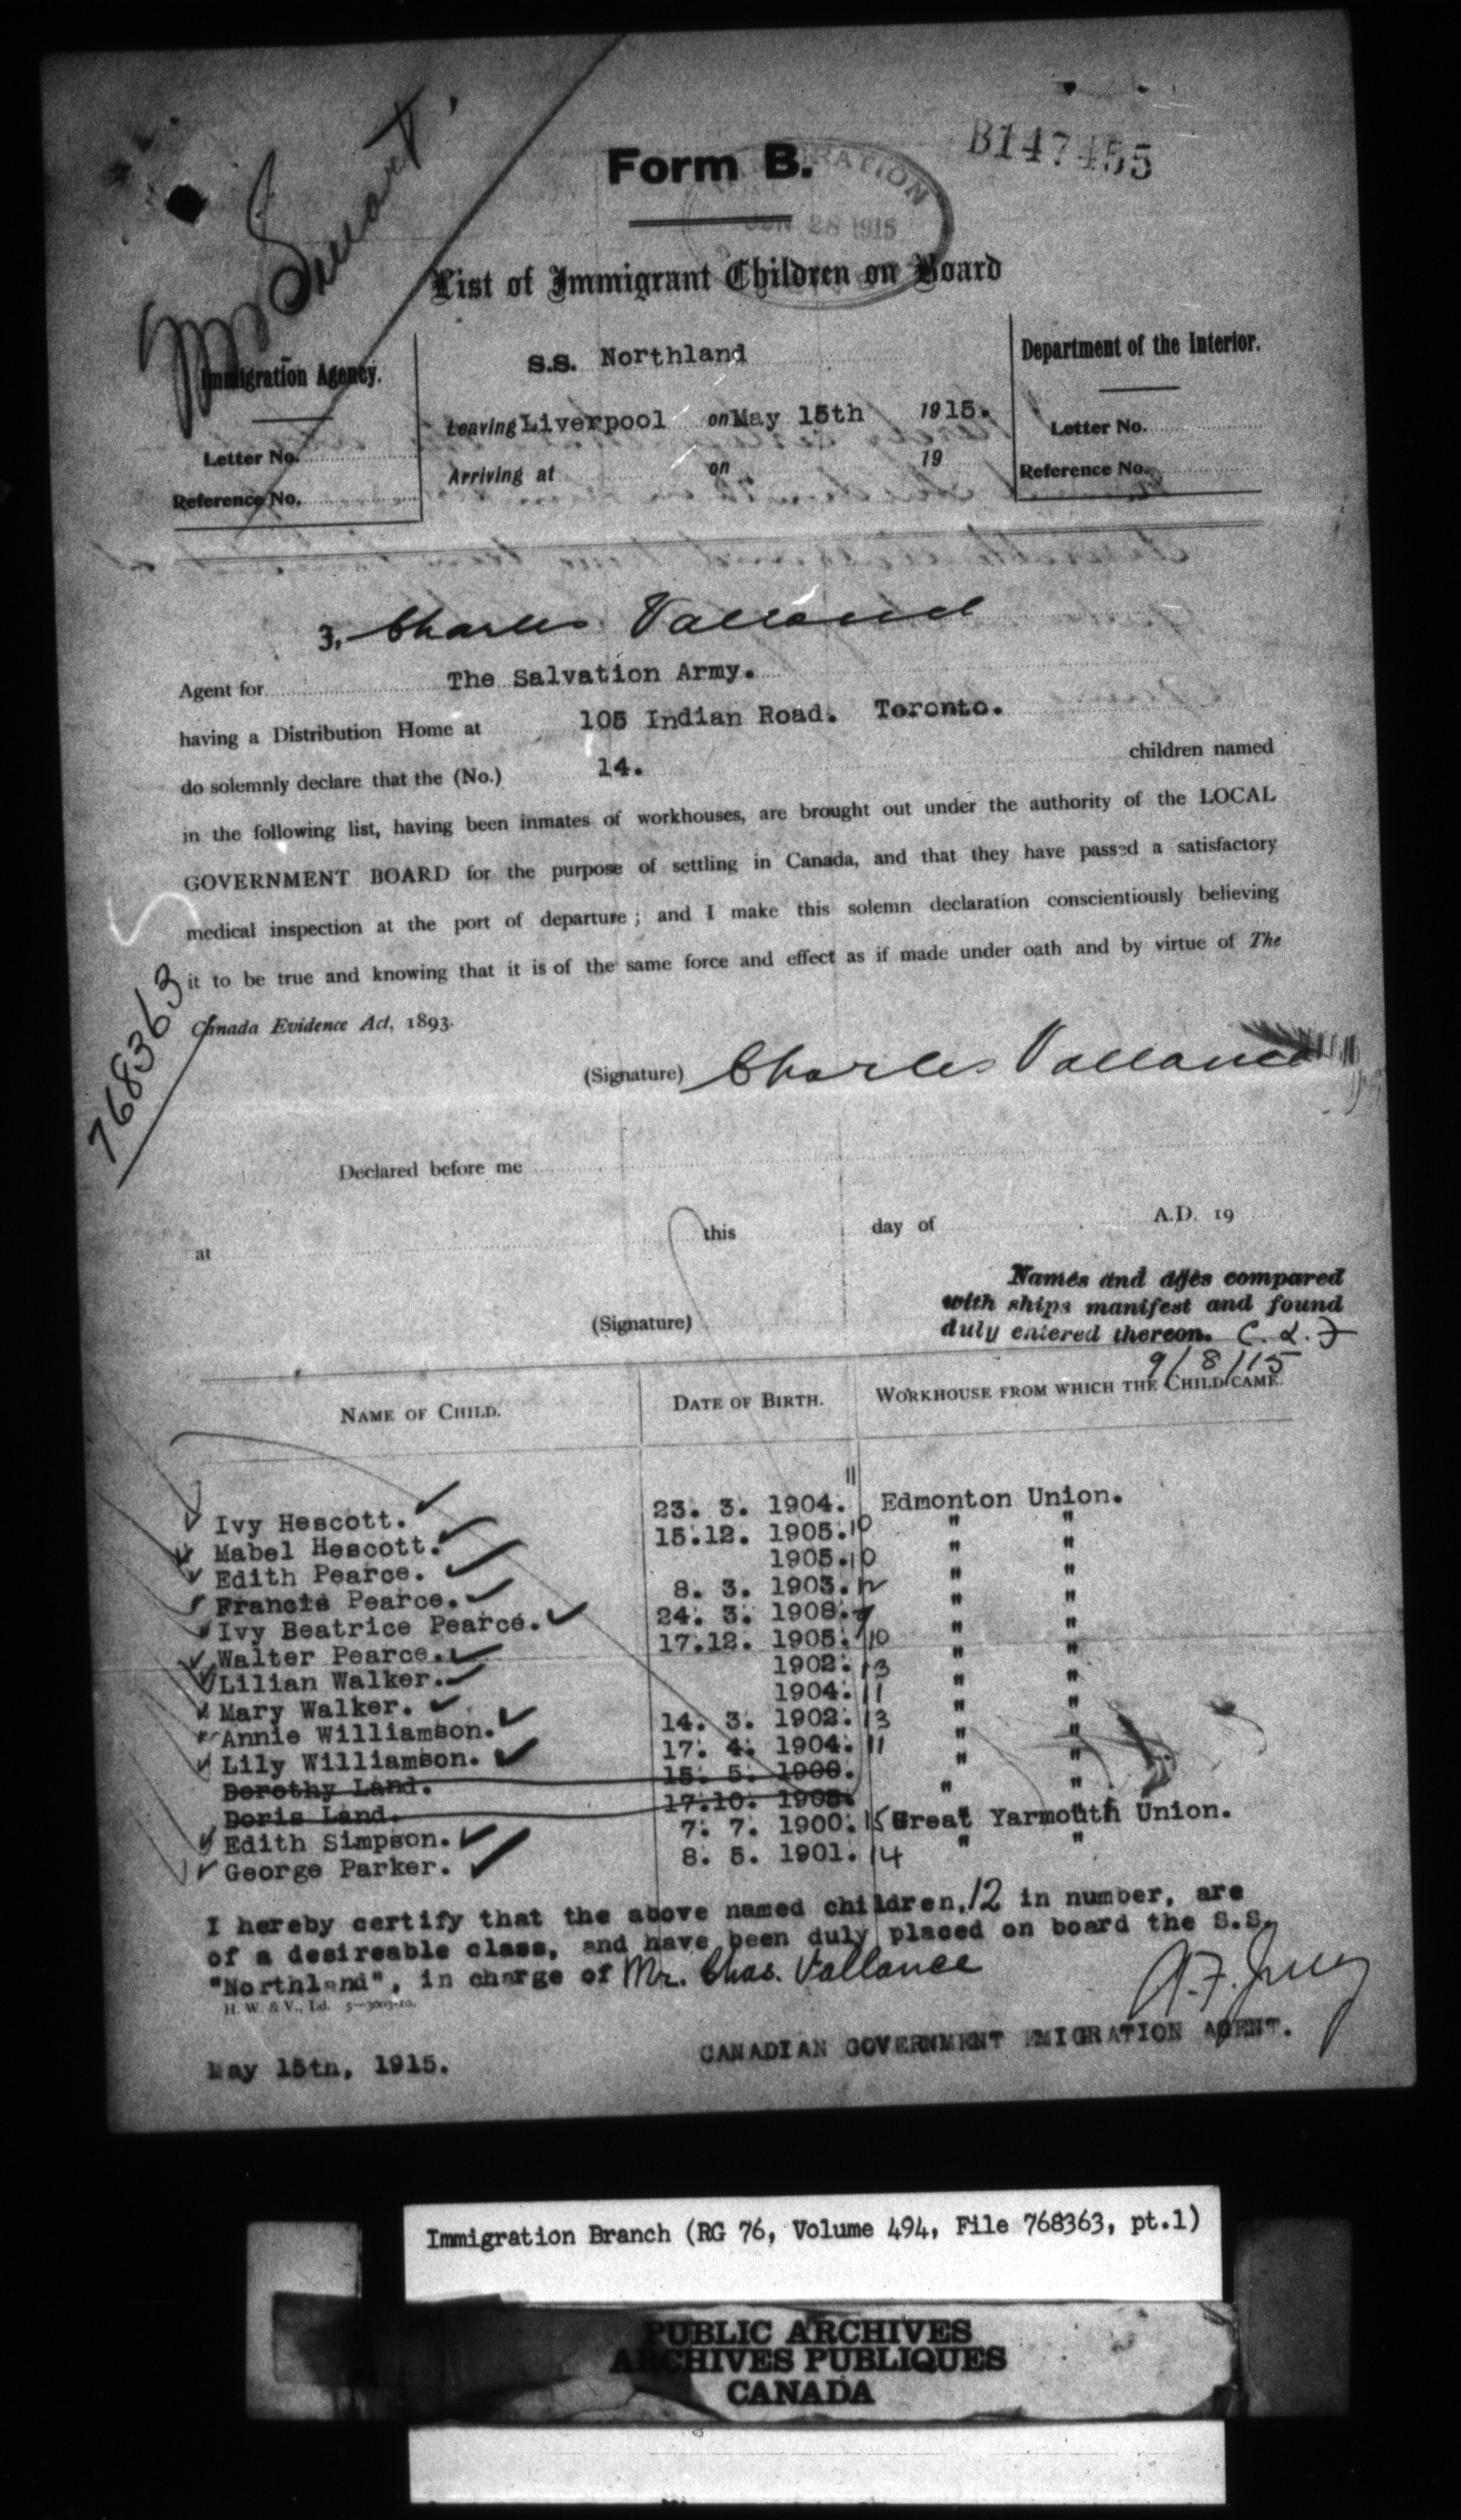 Mr Smart.
B147455
Form B.
JUN 28 1915
List of Immigrant Children on Board
Immigration Agency.
Letter No.
Reference No.
S.S. Northland
Leaving Liverpool on May 15th 1915.
Arriving at on 19
Department of the Interior.
Letter No.
Reference No.
3, Charles Vallance
Agent for The Salvation Army.
having a Distribution Home at 105 Indian Road. Toronto.
do solemnly declare that the (No.) 14. children named
in the following list, having been inmates of workhouses, are brought out under the authority of the LOCAL
GOVERNMENT BOARD for the purpose of settling in Canada, and that they have passed a satisfactory
medical inspection at the port of departure; and I make this solemn declaration conscientiously believing
it to be true and knowing that it is of the same force and effect as if made under oath and by virtue of The
Canada Evidence Act, 1893.
768363
(Signature) Charles Vallance
Declared before me
at this day of A.D. 19
(Signature)
Names and ages compared
with ships manifest and found
duly entered thereon.
9/8/15
NAME OF CHILD. DATE OF BIRTH. WORKHOUSE FROM WHICH THE CHILD CAME.
Ivy Hescott. 23. 3. 1904. 11 Edmonton Union.
Mabel Hescott. 15.12. 1905. 10 " "
Edith Pearce. 1905. 10 " "
Francis Pearce. 8. 3. 1903. 12 " "
Ivy Beatrice Pearce. 24. 3. 1908. 7 " "
Walter Pearce. 17.12. 1905. 10 " "
Lilian Walker. 1902. 13 " "
Mary Walker. 1904. 11 " "
Annie Williamson. 14. 3. 1902. 13 " "
Lily Williamson. 17. 4. 1904. 11 " "
Dorothy Land. 15. 5. 1900. " "
Doris Land. 17.10. 1905. " "
Edith Simpson. 7. 7. 1900. 15 Great Yarmouth Union.
George Parker. 8. 5. 1901. 14 " "
I hereby certify that the above named children, 12 in number, are
of a desireable class, and have been duly placed on board the S.S.
"Northland", in charge of Mr. Chas. Vallance
H. W. & V., Ld. 5—3003-10.
CANADIAN GOVERNMENT EMIGRATION AGENT.
May 15th, 1915.
Immigration Branch (RG 76, Volume 494, File 768363, pt.1)
PUBLIC ARCHIVES
ARCHIVES PUBLIQUES
CANADA